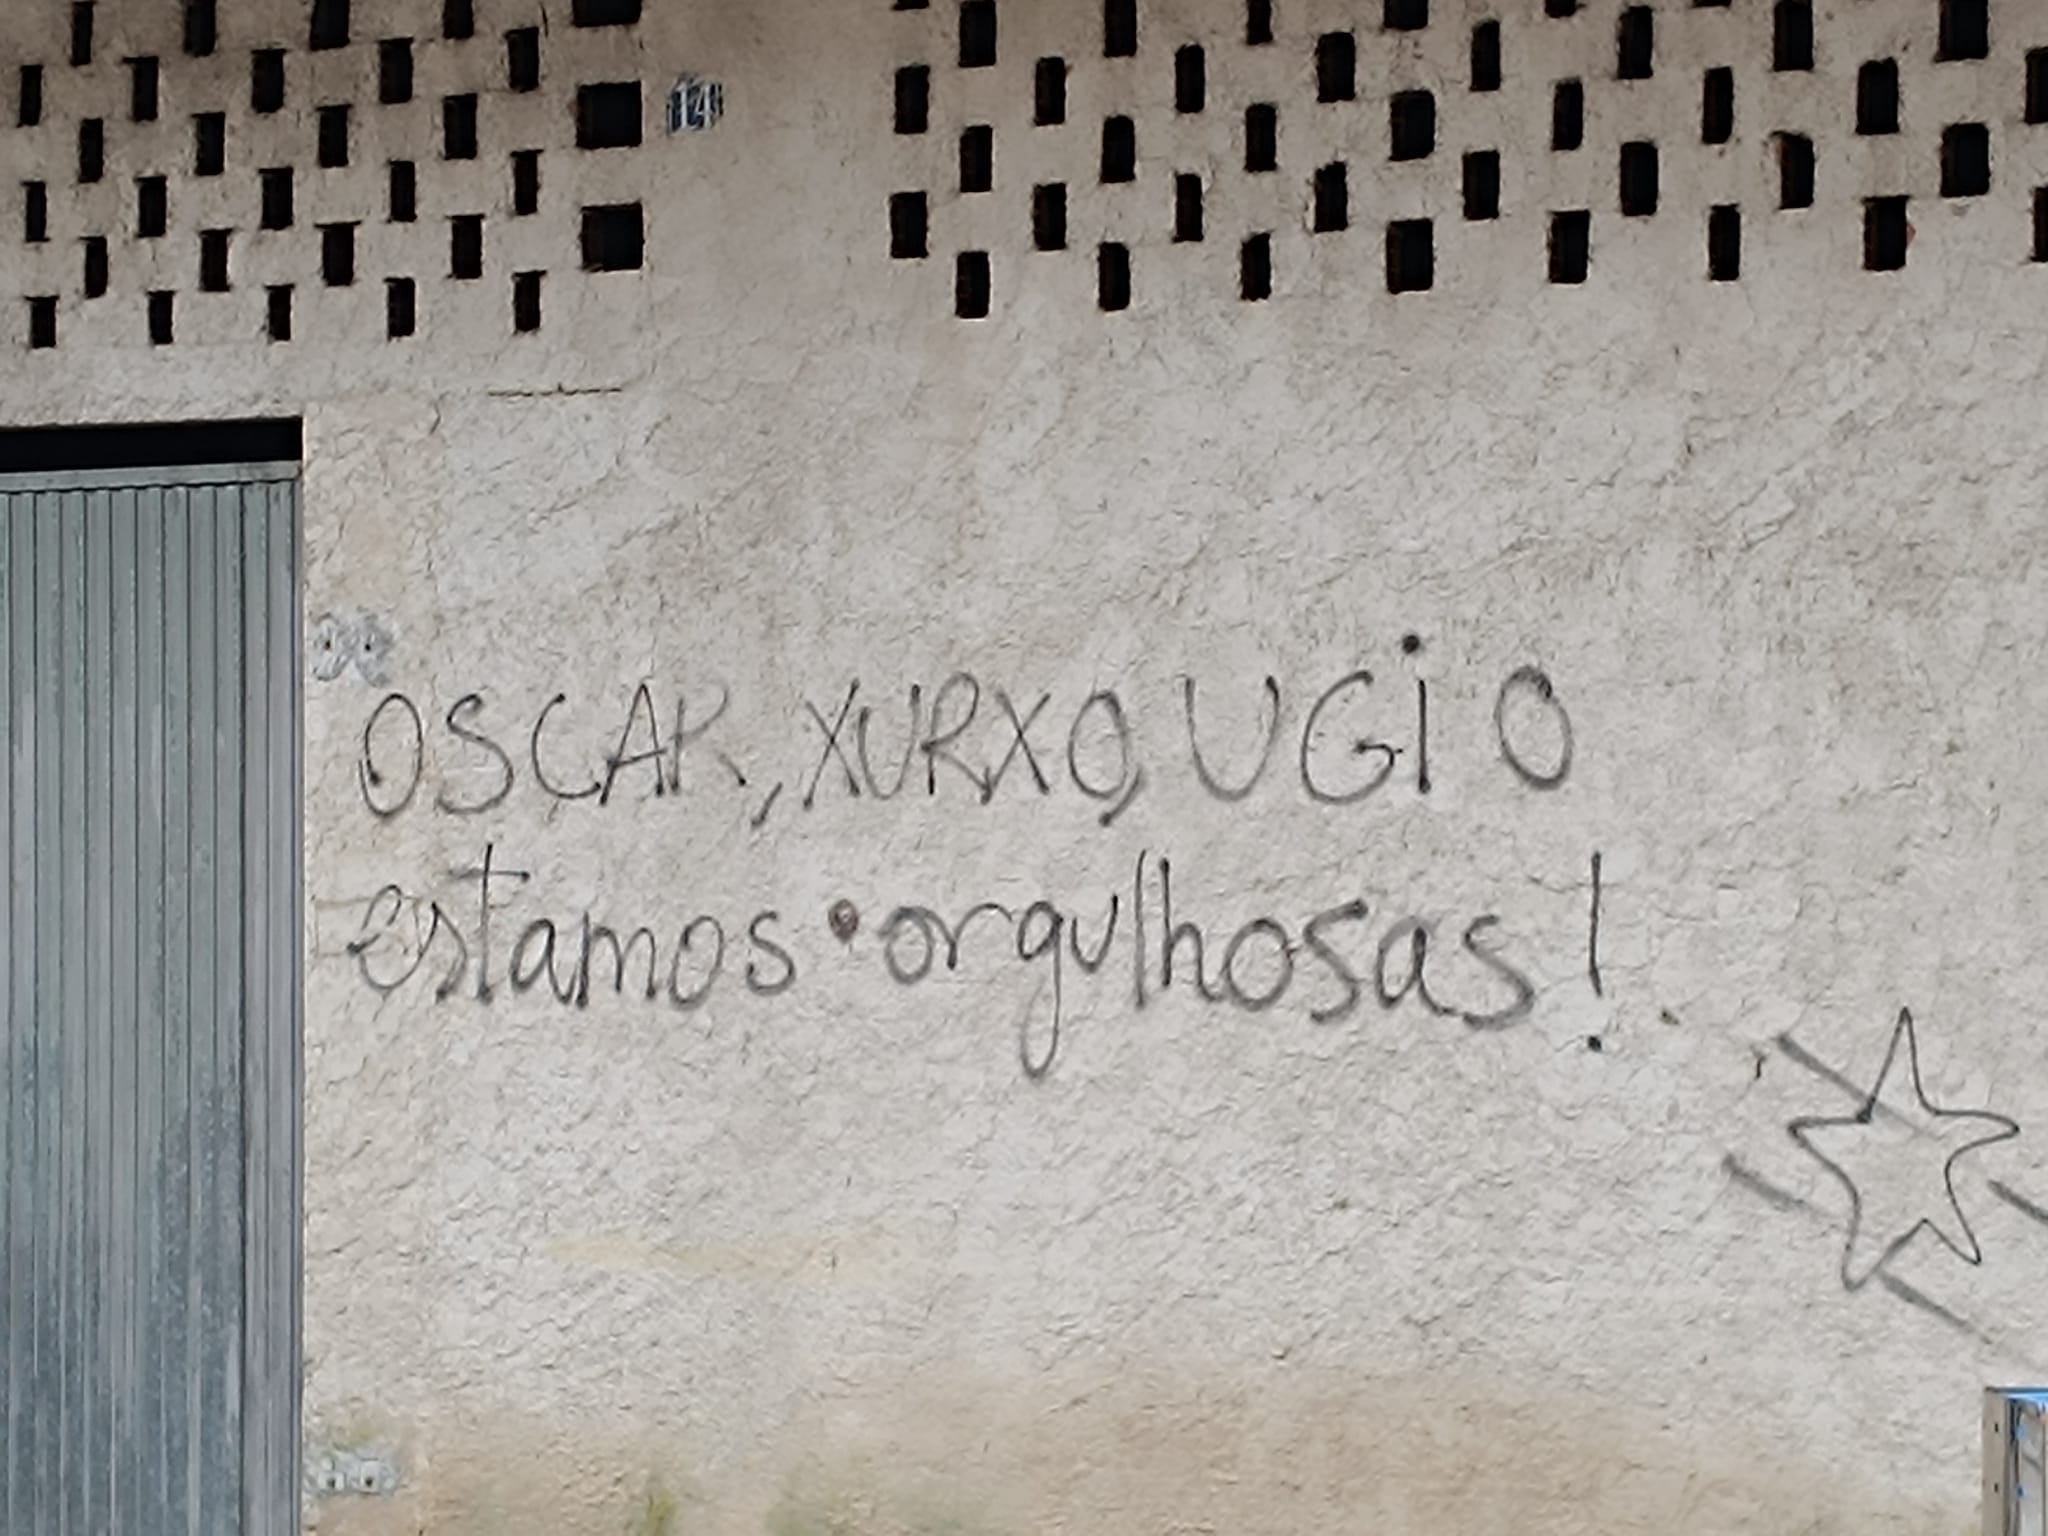 14
OSCAR, XURXO, UGiO
estamos orgulhosas!